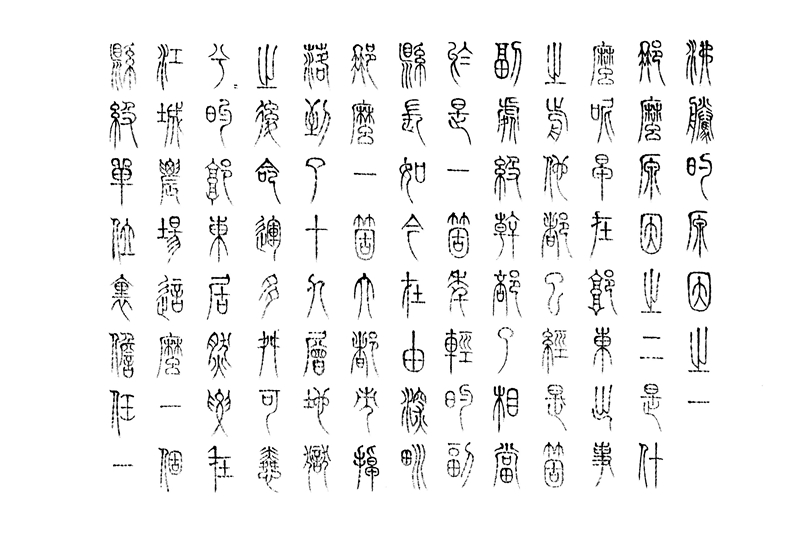 沸騰的原因之一
那麼原因之二是什
麼呢早在東出事
之前他都已經是箇
副處級幹部了相當
於是一箇年輕的副
縣長如今在由深圳
那麼一箇大都市掉
落到了十八層地獄
之後命運多舛可悲
兮〻的東居然要在
江城農場這麼一個
縣級單位裏擔任一